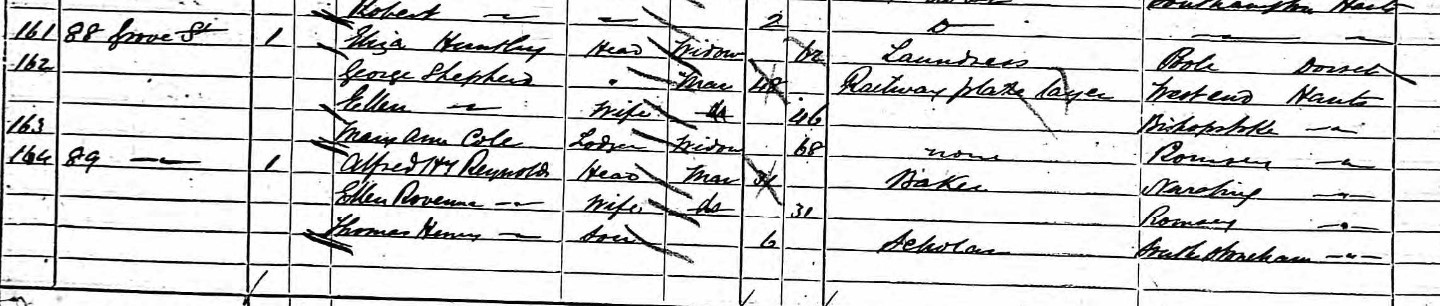 Robert — — 2 Southampton Hants
161 88 Grove St 1 Eliza Huntley Head Widow 62 Laundress Pole Dorset
162 George Shepherd " Mar 48 Railway plate layer Westend Hants
Ellen — Wife do 46 Bishopstoke — " —
163 Mary Ann Cole Lodger Widow 68 none Romsey — " —
164 89 — 1 Alfred Hy Reynolds Head Mar 31 Baker Nursling — " —
Ellen Rovenna — Wife do 31 Romsey — " —
Thomas Henry — Son 6 Scholar South Stoneham — " —